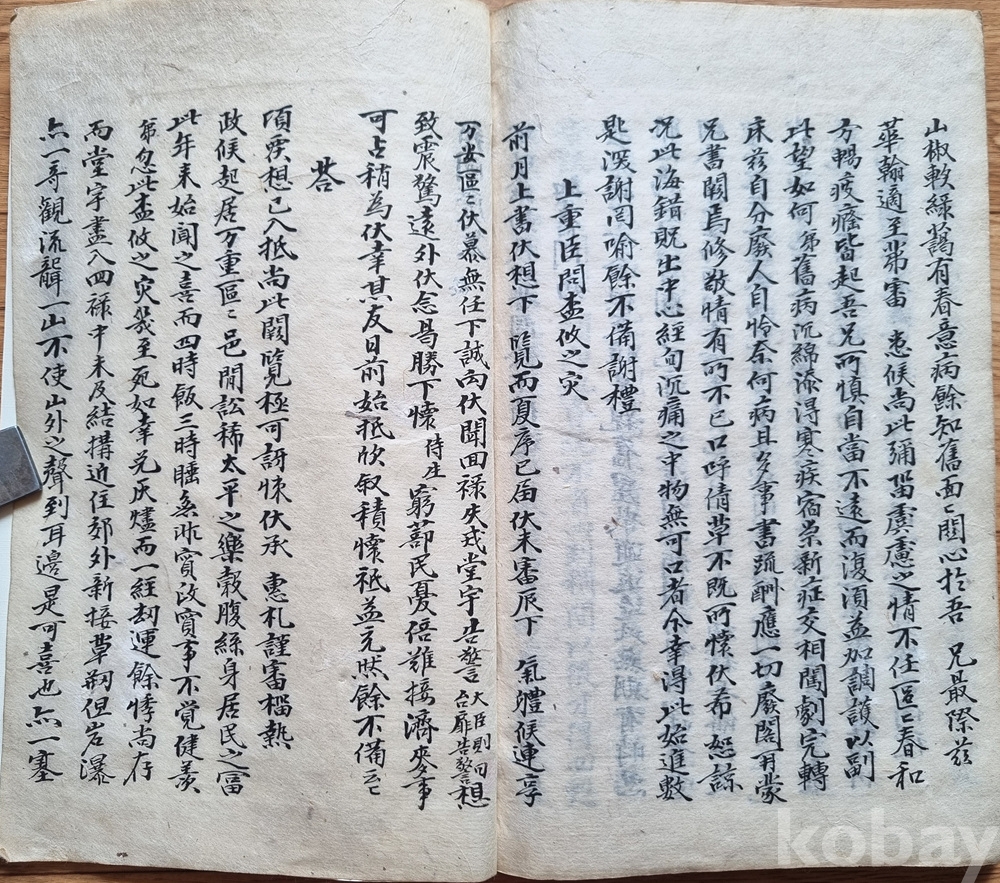 山椒軟綠蒿有春意病餘知舊面〻閱心於吾 兄最際玆
華翰適至弟審 患候尙此彌留虞慮之情不任區〻春和
方暢疲癃皆起吾兄所愼自當不遠而復須益加調護以副
此望如何弟舊病沉綿添得寒疾宿祟新症交相鬪劇宛轉
床玆自分廢人自怜奈何病且多事書疏酬應一切廢閣月蒙
兄書闕焉修敬情有所不已口呼倩草不旣所懷伏希 恕諒
況此海錯旣出中心經旬沉痛之中物無可口者今幸得此始進數
匙感謝罔喩餘不備謝禮
上重臣問 之灾
前月上書伏想下 覽而夏序已届伏未審辰下 氣體候連亨
万安區〻伏慕無任下誠內伏聞回祿失戒堂宇告警大臣則曰台扉告警想
致震驚遠外伏念曷勝下懷侍生窮蔀民憂倍難接濟麥事
可占稍爲伏幸某友日前始抵欣叙積懷祗益元然餘不備云〻
答
頃爰想已入抵尙此闕覽極可訝悚伏承 惠札謹審榴熱
政候起居万重區〻邑閒訟稀太平之樂穀腹絲身居民之富
此年來始聞之喜而四時飯三時睡無非實政實事不覺健羨
弟忽此 之灾幾至死如幸免灰燼而一經刧運餘悸尙存
而堂宇盡入四祿中未及結搆近住郊外新接草 但岩瀑
亦一奇觀流聲一山不使山外之聲到耳邊是可喜也亦一塞
kobay